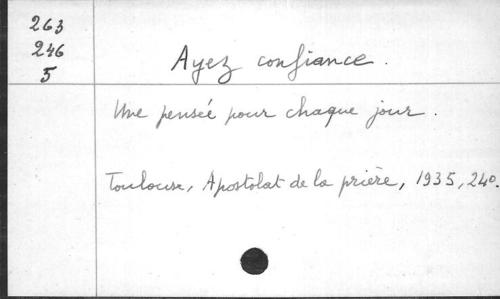 263
246
5
Ayez confiance.
Une pensée pour chaque jour.
Toulouse, Apostolat de la prière, 1935, 24°.